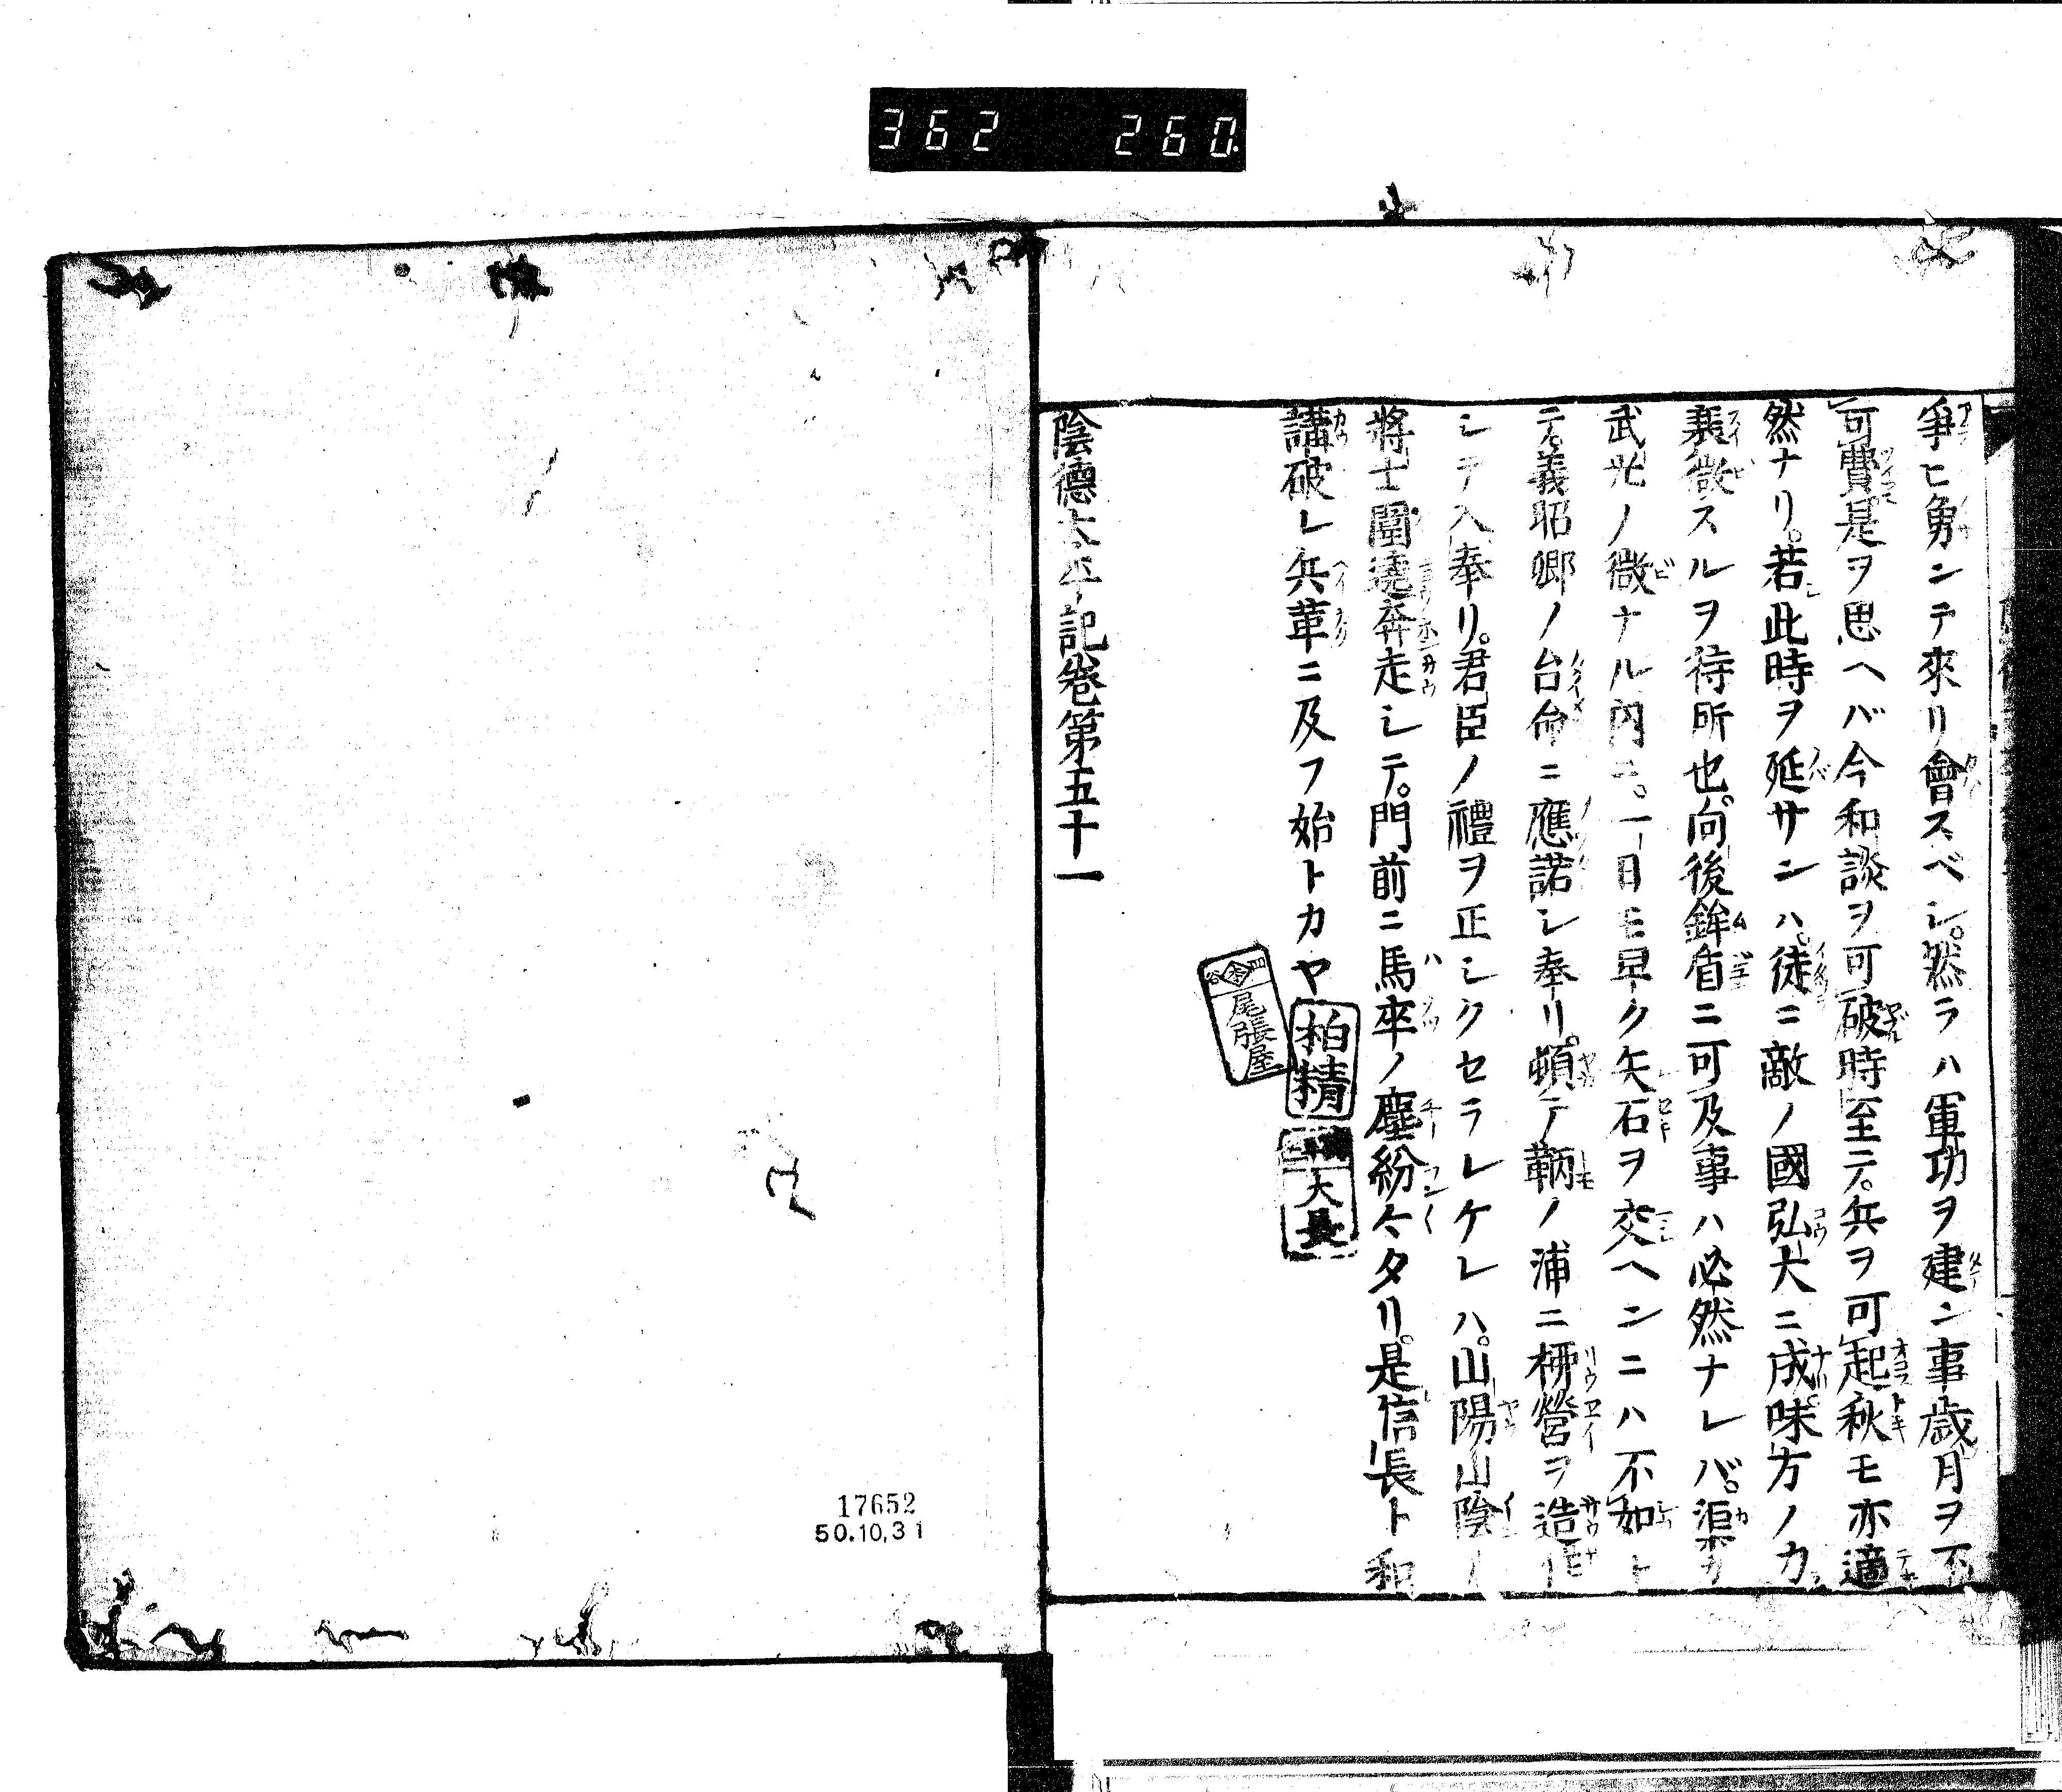 362 260
爭ヒ勇ンテ來リ會スベシ。然ラハ軍功ヲ建ン事歳月ヲ不
可費是ヲ思ヘバ今和談ヲ可破時至テ。兵ヲ可起秋モ亦適
然ナリ。若此時ヲ延サンハ。徒ニ敵ノ國弘大ニ成味方ノカ
衰微スルヲ待所也。向後鉾盾ニ可及事ハ必然ナレバ。渠カ
武光ノ微ナル内ニ。一日モ早ク矢石ヲ交ヘンニハ不如ト
テ。義昭卿ノ台命ニ應諾シ奉リ。頓テ鞆ノ浦ニ柳營ヲ造作
シテ入奉リ。君臣ノ禮ヲ正シクセラレケレハ。山陽山陰ノ
將士圍遶奔走シテ。門前ニ馬卒ノ塵紛々タリ。是信長ト和
講破レ兵革ニ及フ始トカヤ
柏精
大長
尾張屋
陰德太平記卷第五十一
17652
50.10.31